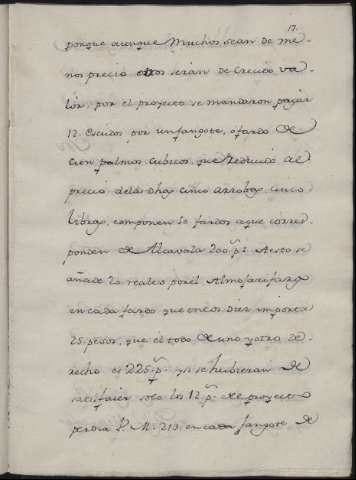 17.
porque aunque Muchos sean de me-
nos precio otros serán de crecido va-
lòr, por el proyecto se mandaron pagar
12. Escudos por un fangote, o fardo de
cien palmos cubicos, que reducido al
precio delas dhas cinco arrobas cinco
libras, componen 10 fardos aque corres-
ponden de Alcavala 200 p.s Aesto se
añade 20 reales por el Almojarifazgo
en cada fardo que en los diez importa
25 pesos, que el todo de uno y otro de-
recho es 225 p.s y si se hubieran de
satisfazer solo los 12 p.s de proyecto
perdia S. M. 213. en cada fangote de